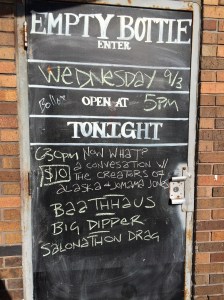 EMPTY BOTTLE
ENTER
WEDNESDAY 9/3
OPEN AT 5PM
TONIGHT
630pm NOW WHAT?
$10 a CONVESATION W/
THE CREATORS OF
ALASKA & JOMAMA JONES
BaaTHHAUS
BIG DIPPER
SALONATHON DRAG